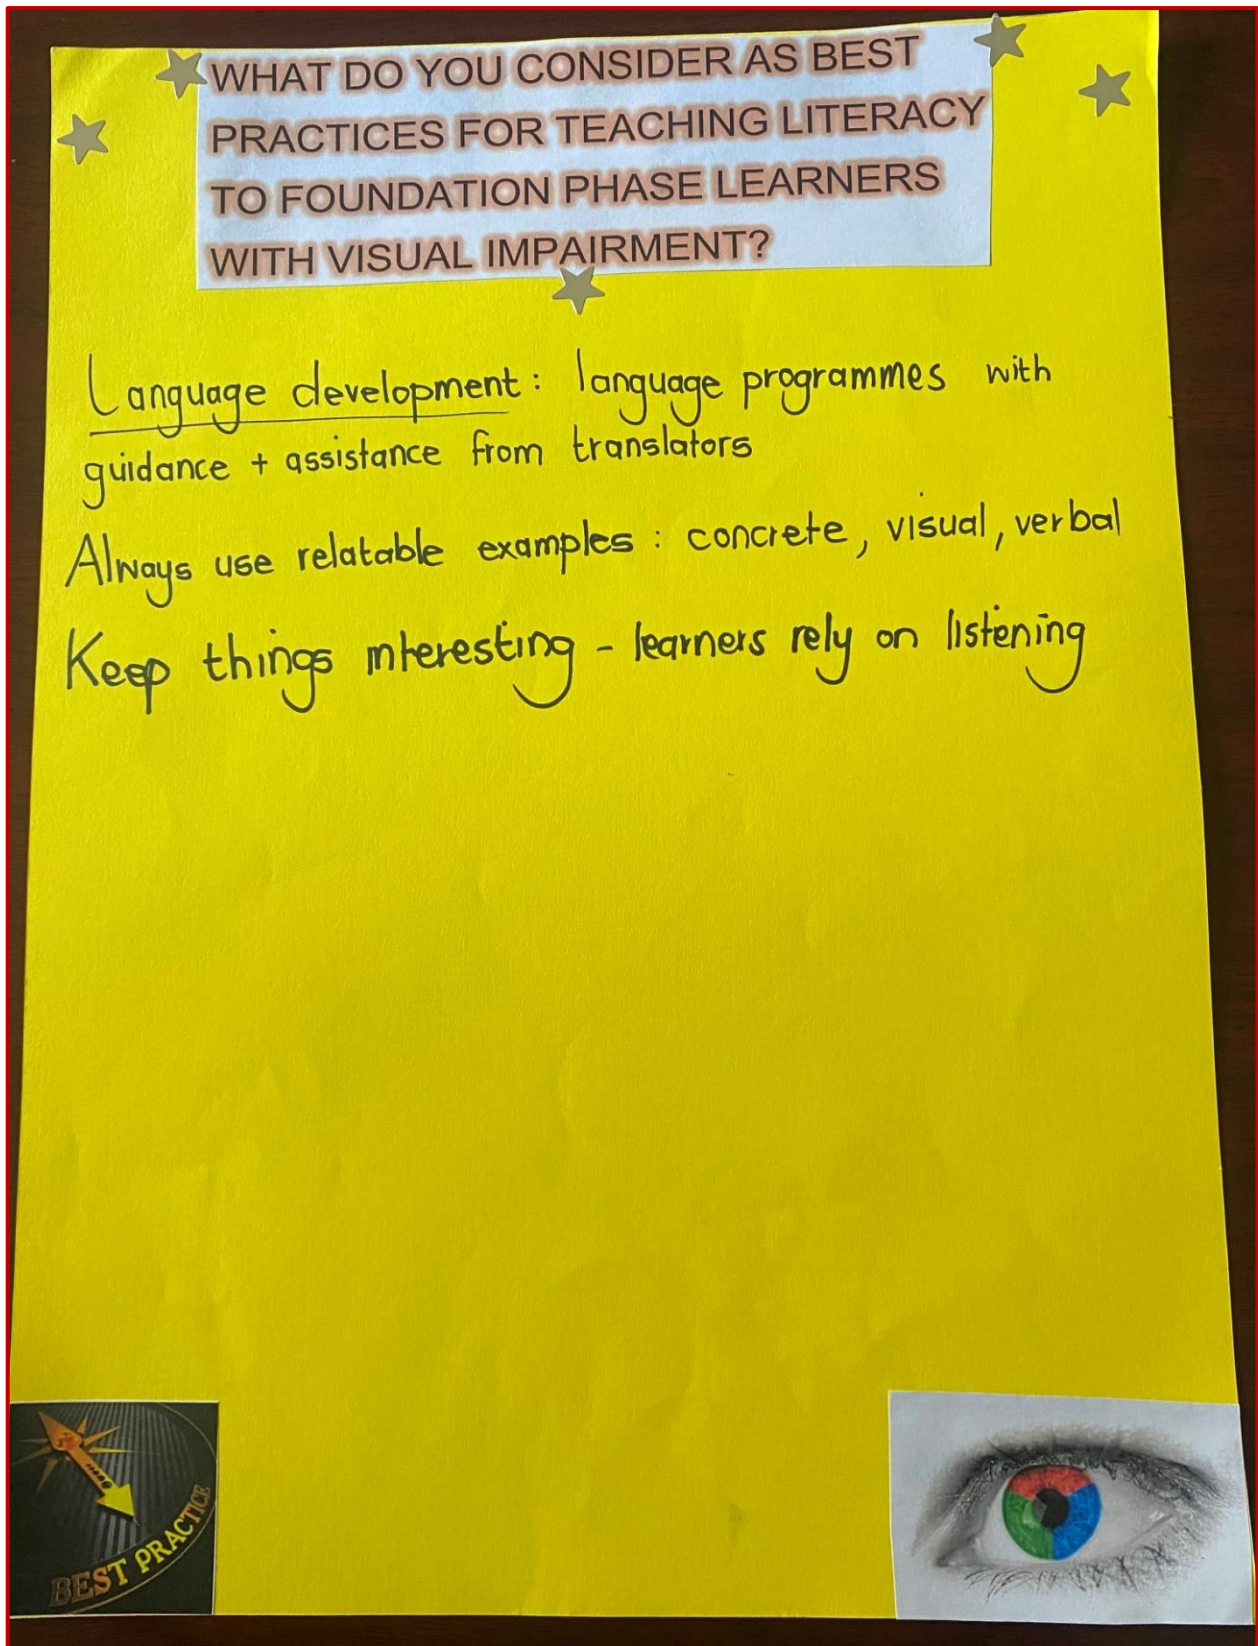 WHAT DO YOU CONSIDER AS BEST
PRACTICES FOR TEACHING LITERACY
TO FOUNDATION PHASE LEARNERS
WITH VISUAL IMPAIRMENT?
Language development: language programmes with
guidance + assistance from translators
Always use relatable examples: concrete, visual, verbal
Keep things interesting - learners rely on listening
BEST PRACTICE